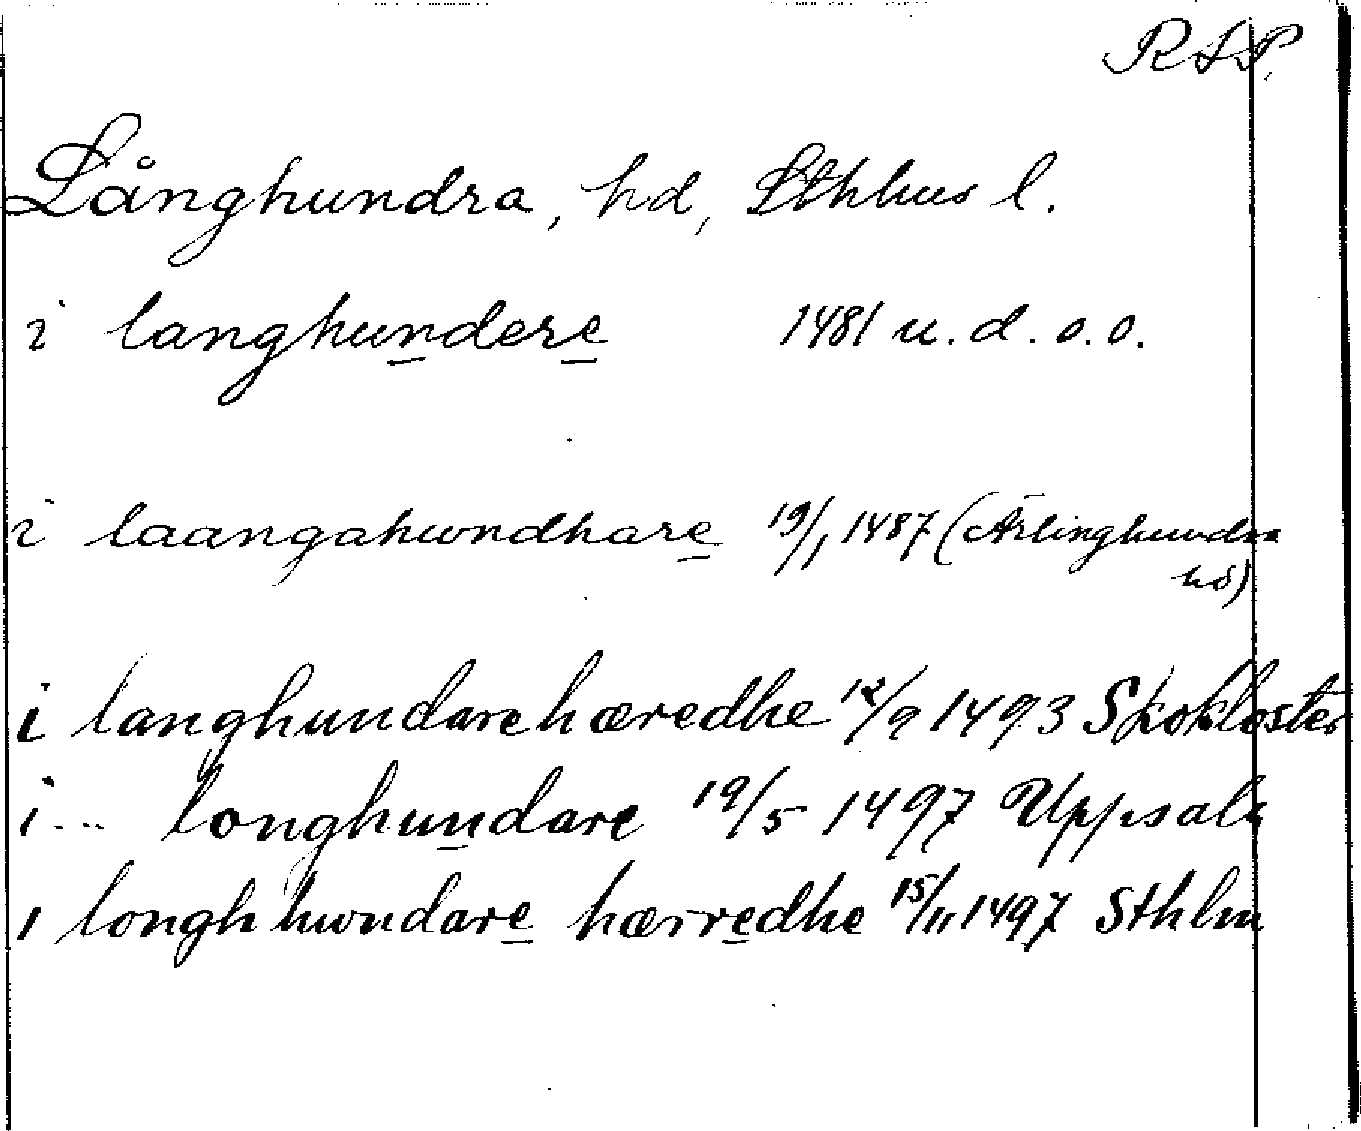 RSP.
Långhundra, hd, Sthlms l.
i langhundere 1481 u.d.o.o.
i laangahwndhare 19/1 1487 (Ärlinghundra
hd)
i langhundarehæredhe 12/9 1493 Skokloster
i... longhundare 19/5 1497 Uppsala
i longhhwndare hærredhe 15/11 1497 Sthlm